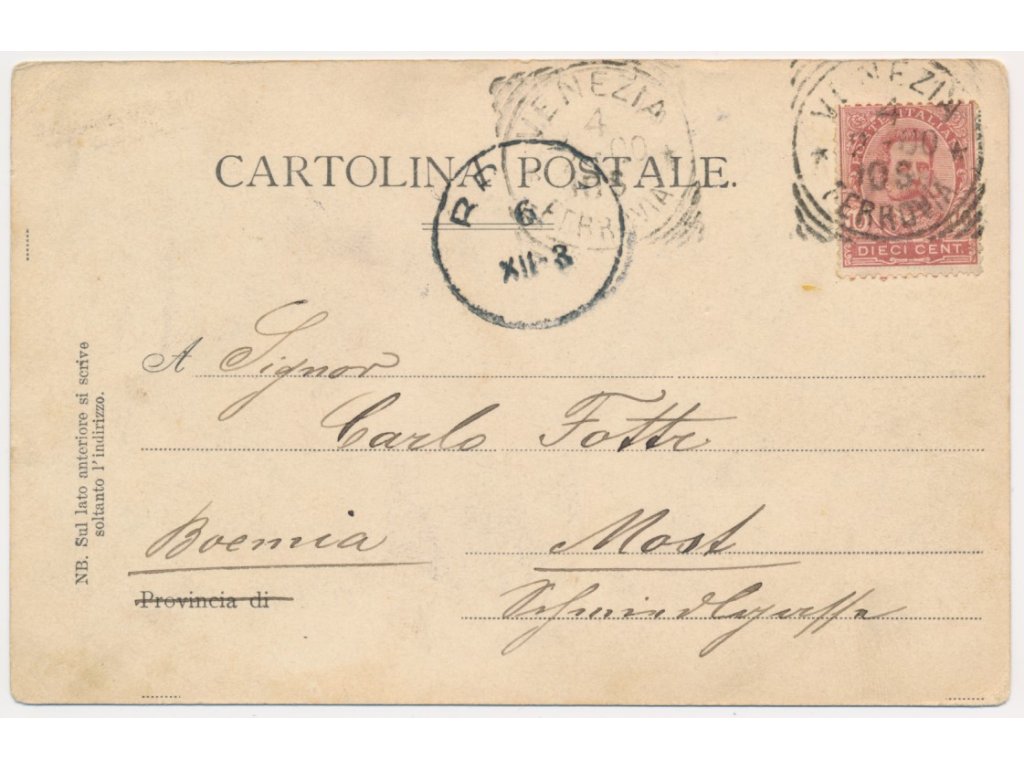 VENEZIA
4
00
FERROVIA
VENEZIA
4
00
10 S
FERROVIA
POSTE ITALIANE
DIECI CENT.
CARTOLINA POSTALE.
6
XII-3
A Signor
Carlo Fottr
Boemia Most
Provincia di Schmiedlgasse
NB. Sul lato anteriore si scrive
soltanto l'indirizzo.